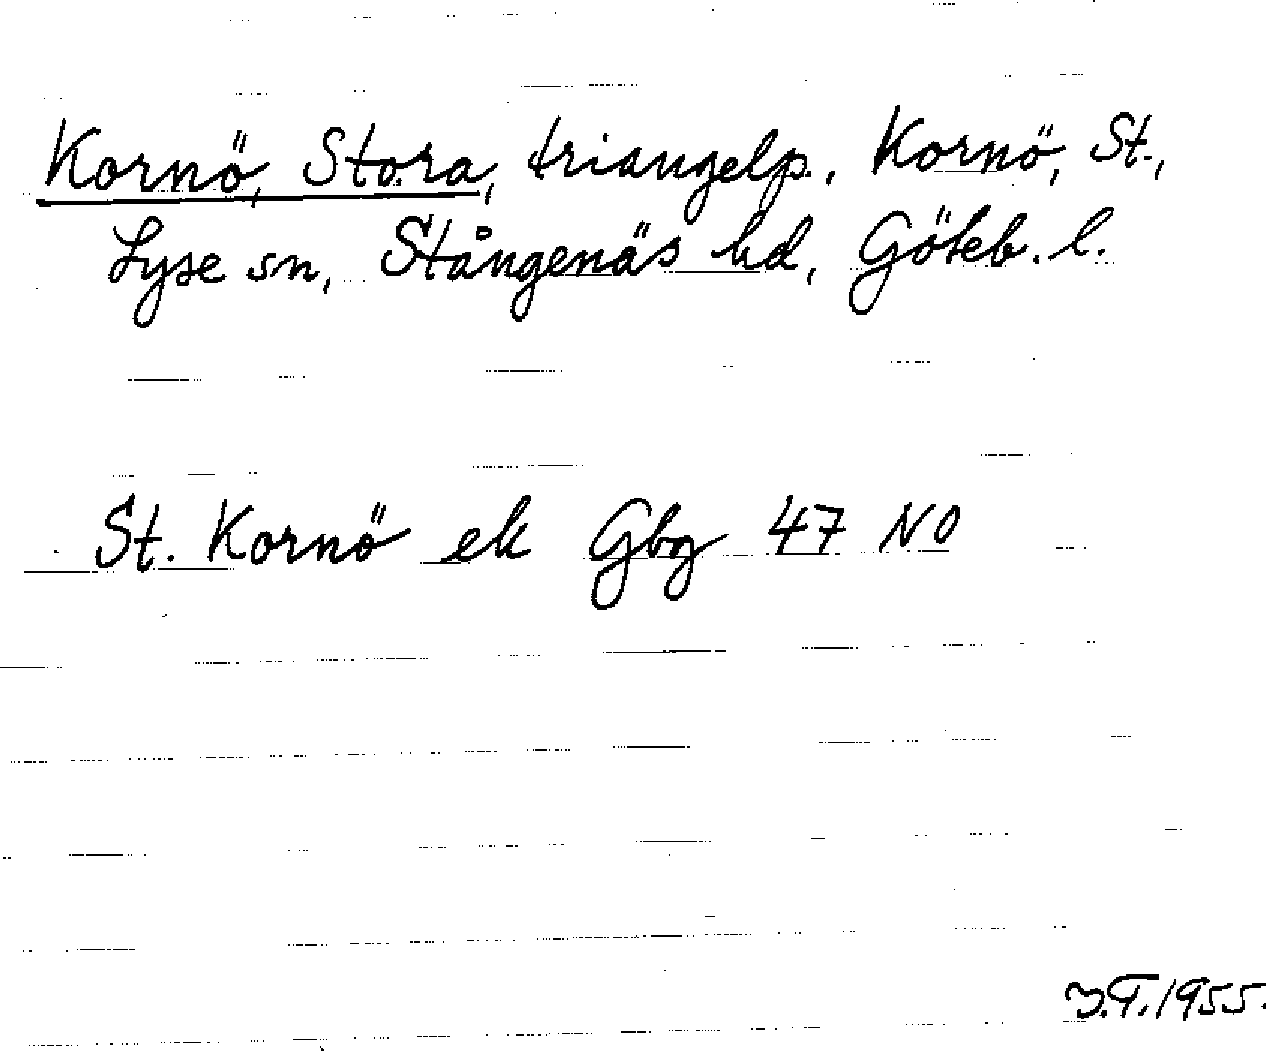 Kornö, Stora, triangelp., Kornö, St.,
Lyse sn, Stångenäs hd, Göteb. l.
St. Kornö ek Gbg 47 NO
J.T. 1955.